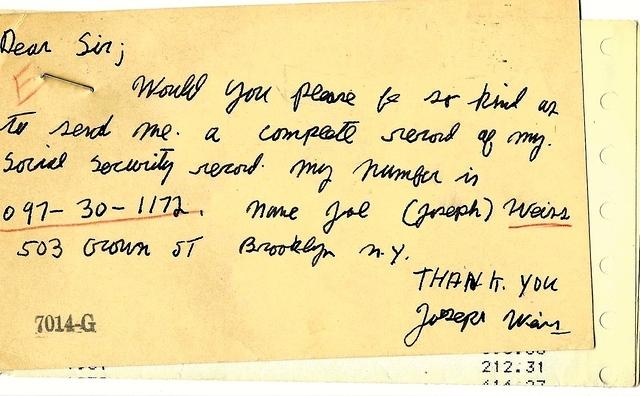 Dear Sir;
E
Would you please be so kind as
to send me. a complete record of my.
Social Security record. My number is
097-30-1172. Name Joel (Joseph) Weiss
503 Crown ST Brooklyn N.Y.
THANK. YOU
Joseph Weiss
7014-G
212.31